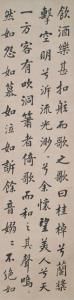 飲酒樂甚扣舷而歌之歌曰桂棹兮蘭槳
擊空明兮泝流光渺渺兮余懷望美人兮天
一方客有吹洞簫者倚歌而和之其聲嗚嗚
然如怨如慕如泣如訴餘音嫋嫋不絕如